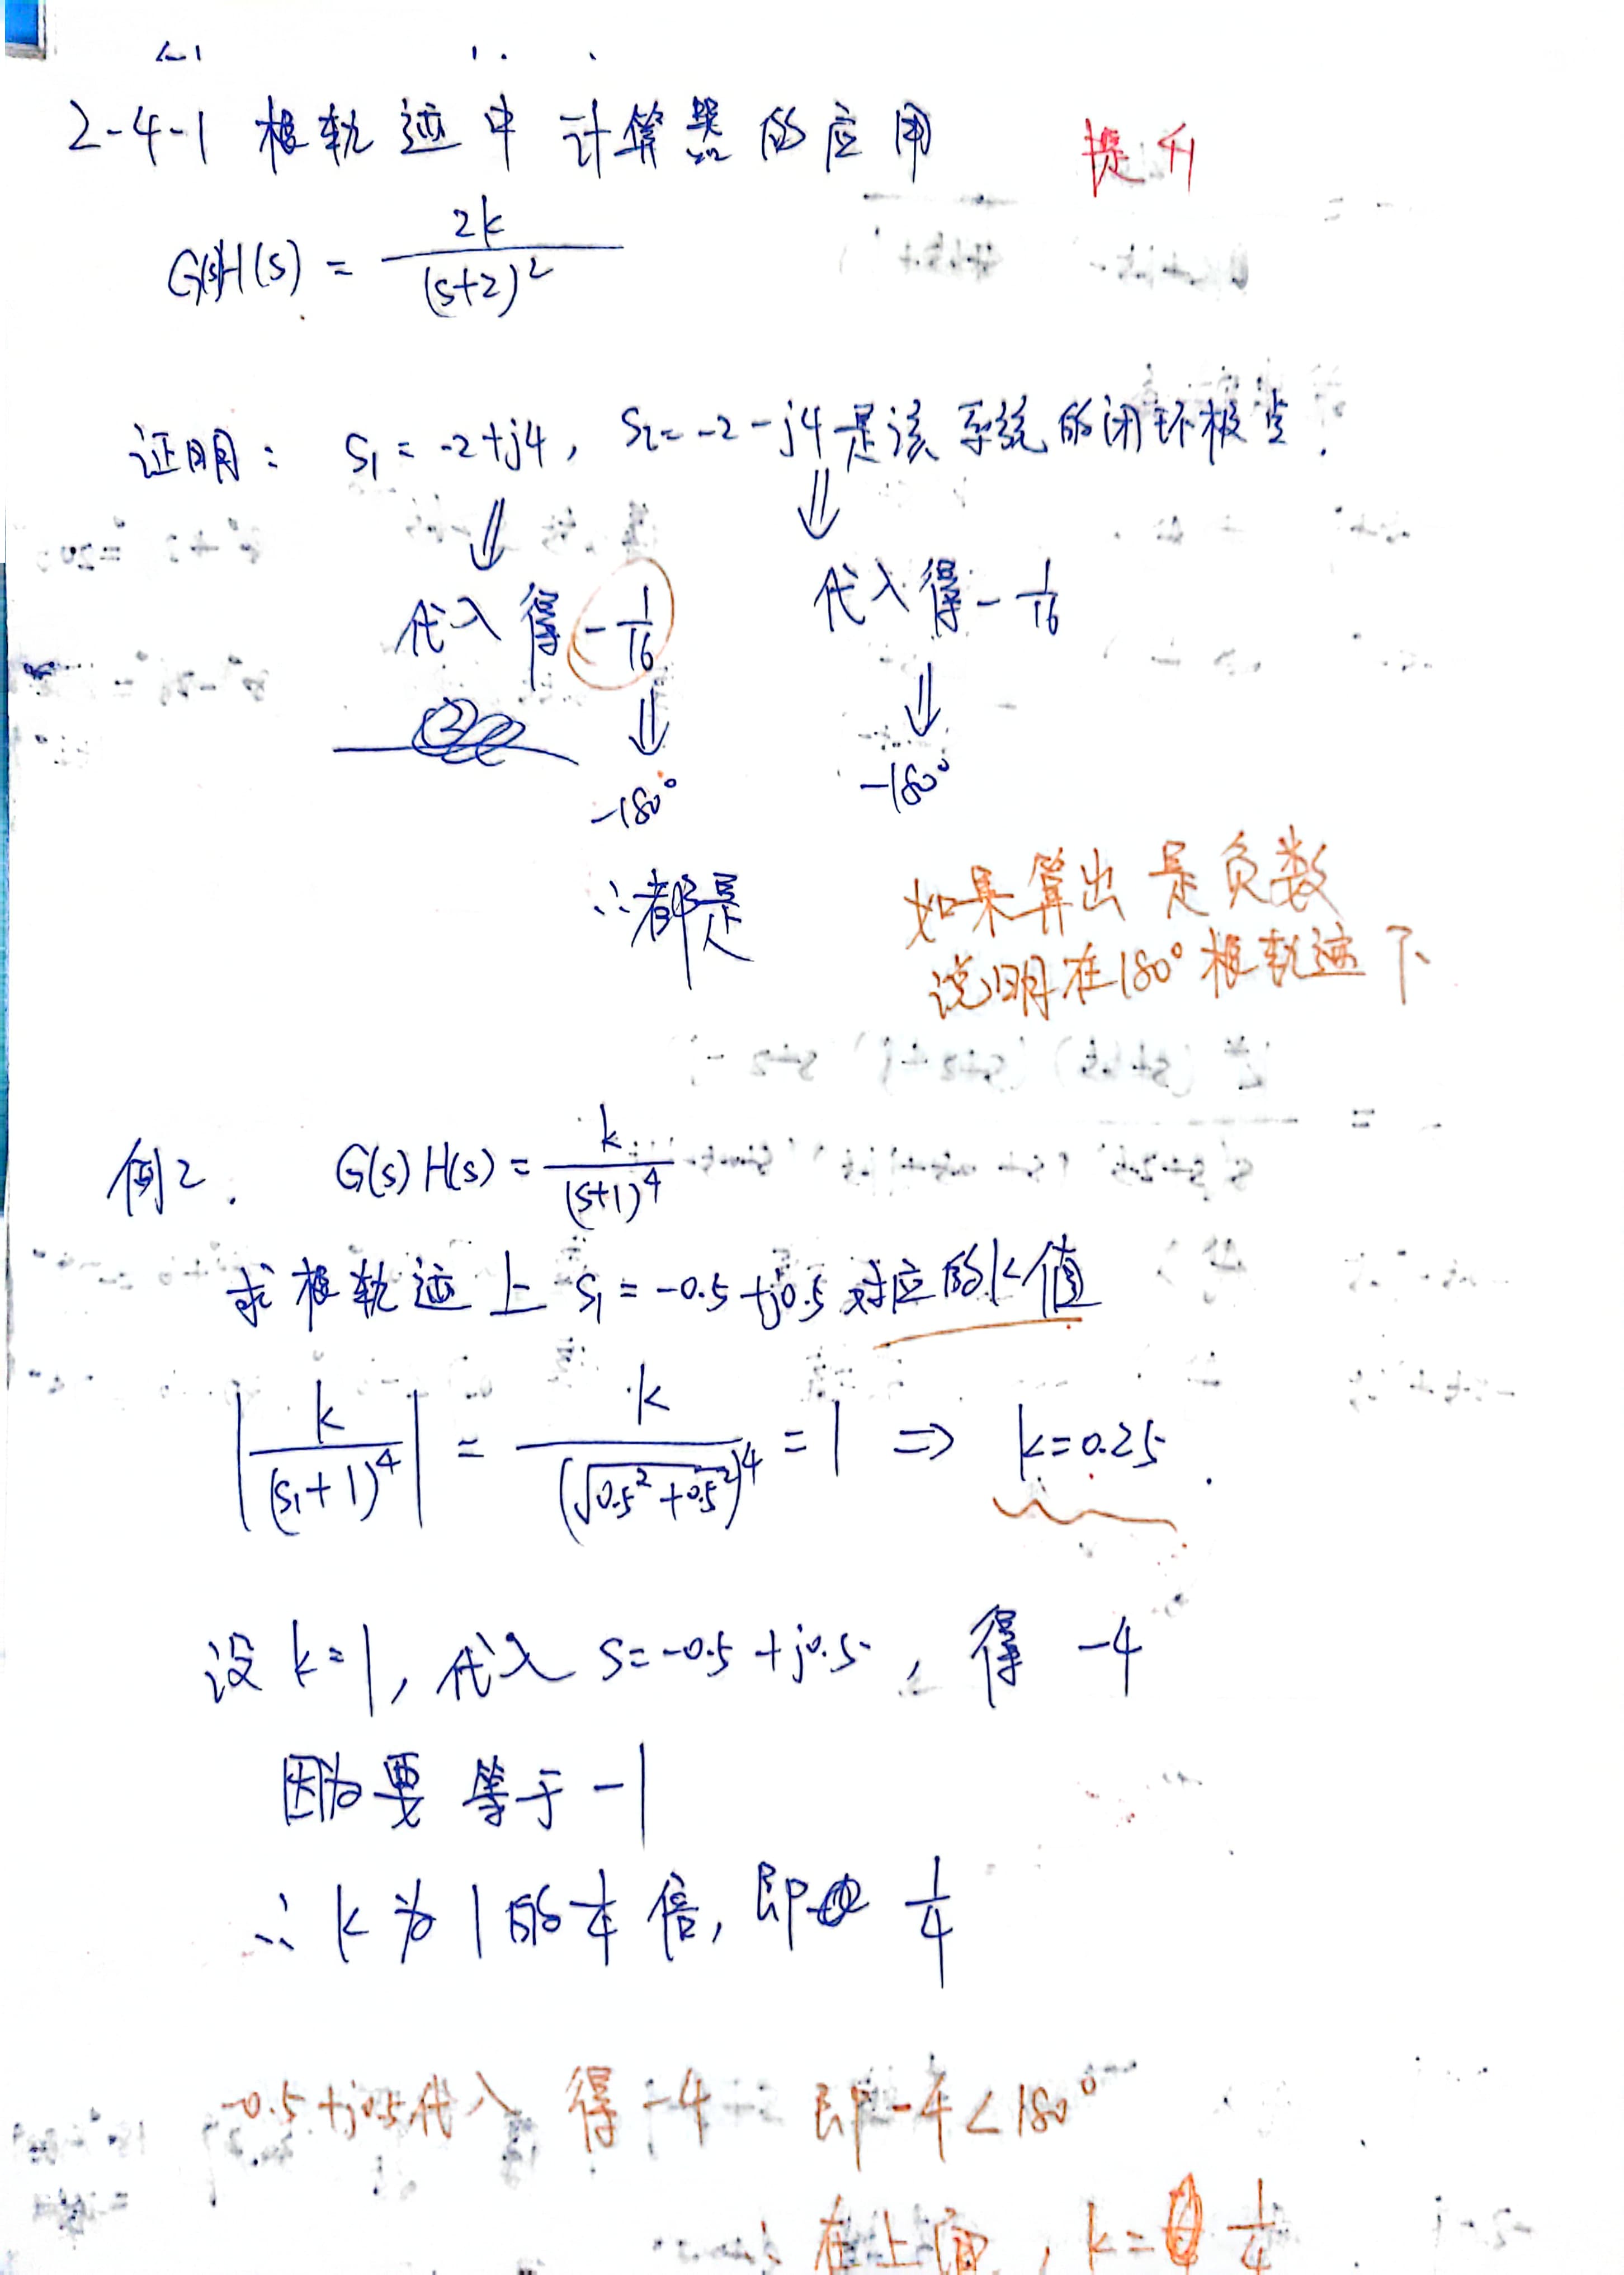 2-4-1 根轨迹中计算器的应用 提升
G(s)H(s) = 2k / (s+2)²
证明： s₁ = -2+j4， s₂ = -2-j4 是该系统的闭环极点.
⇓ ⇓
代入得 -1/16 代入得 -1/16
⇓ ⇓
-180° -180°
∴都是
如果算出是负数
说明在180°根轨迹下
例2. G(s)H(s) = k / (s+1)⁴
求根轨迹上 s₁ = -0.5+j0.5 对应的k值
|k / (s₁+1)⁴| = k / (√0.5²+0.5²)⁴ = 1 ⇒ k=0.25.
设 k=1, 代入 s=-0.5+j0.5, 得 -4
因为要等于 -1
∴ k 为 1 的 1/4 倍, 即 1/4
-0.5+j0.5代入 得 -4 即 -4∠180°
∴在上面, k= 1/4